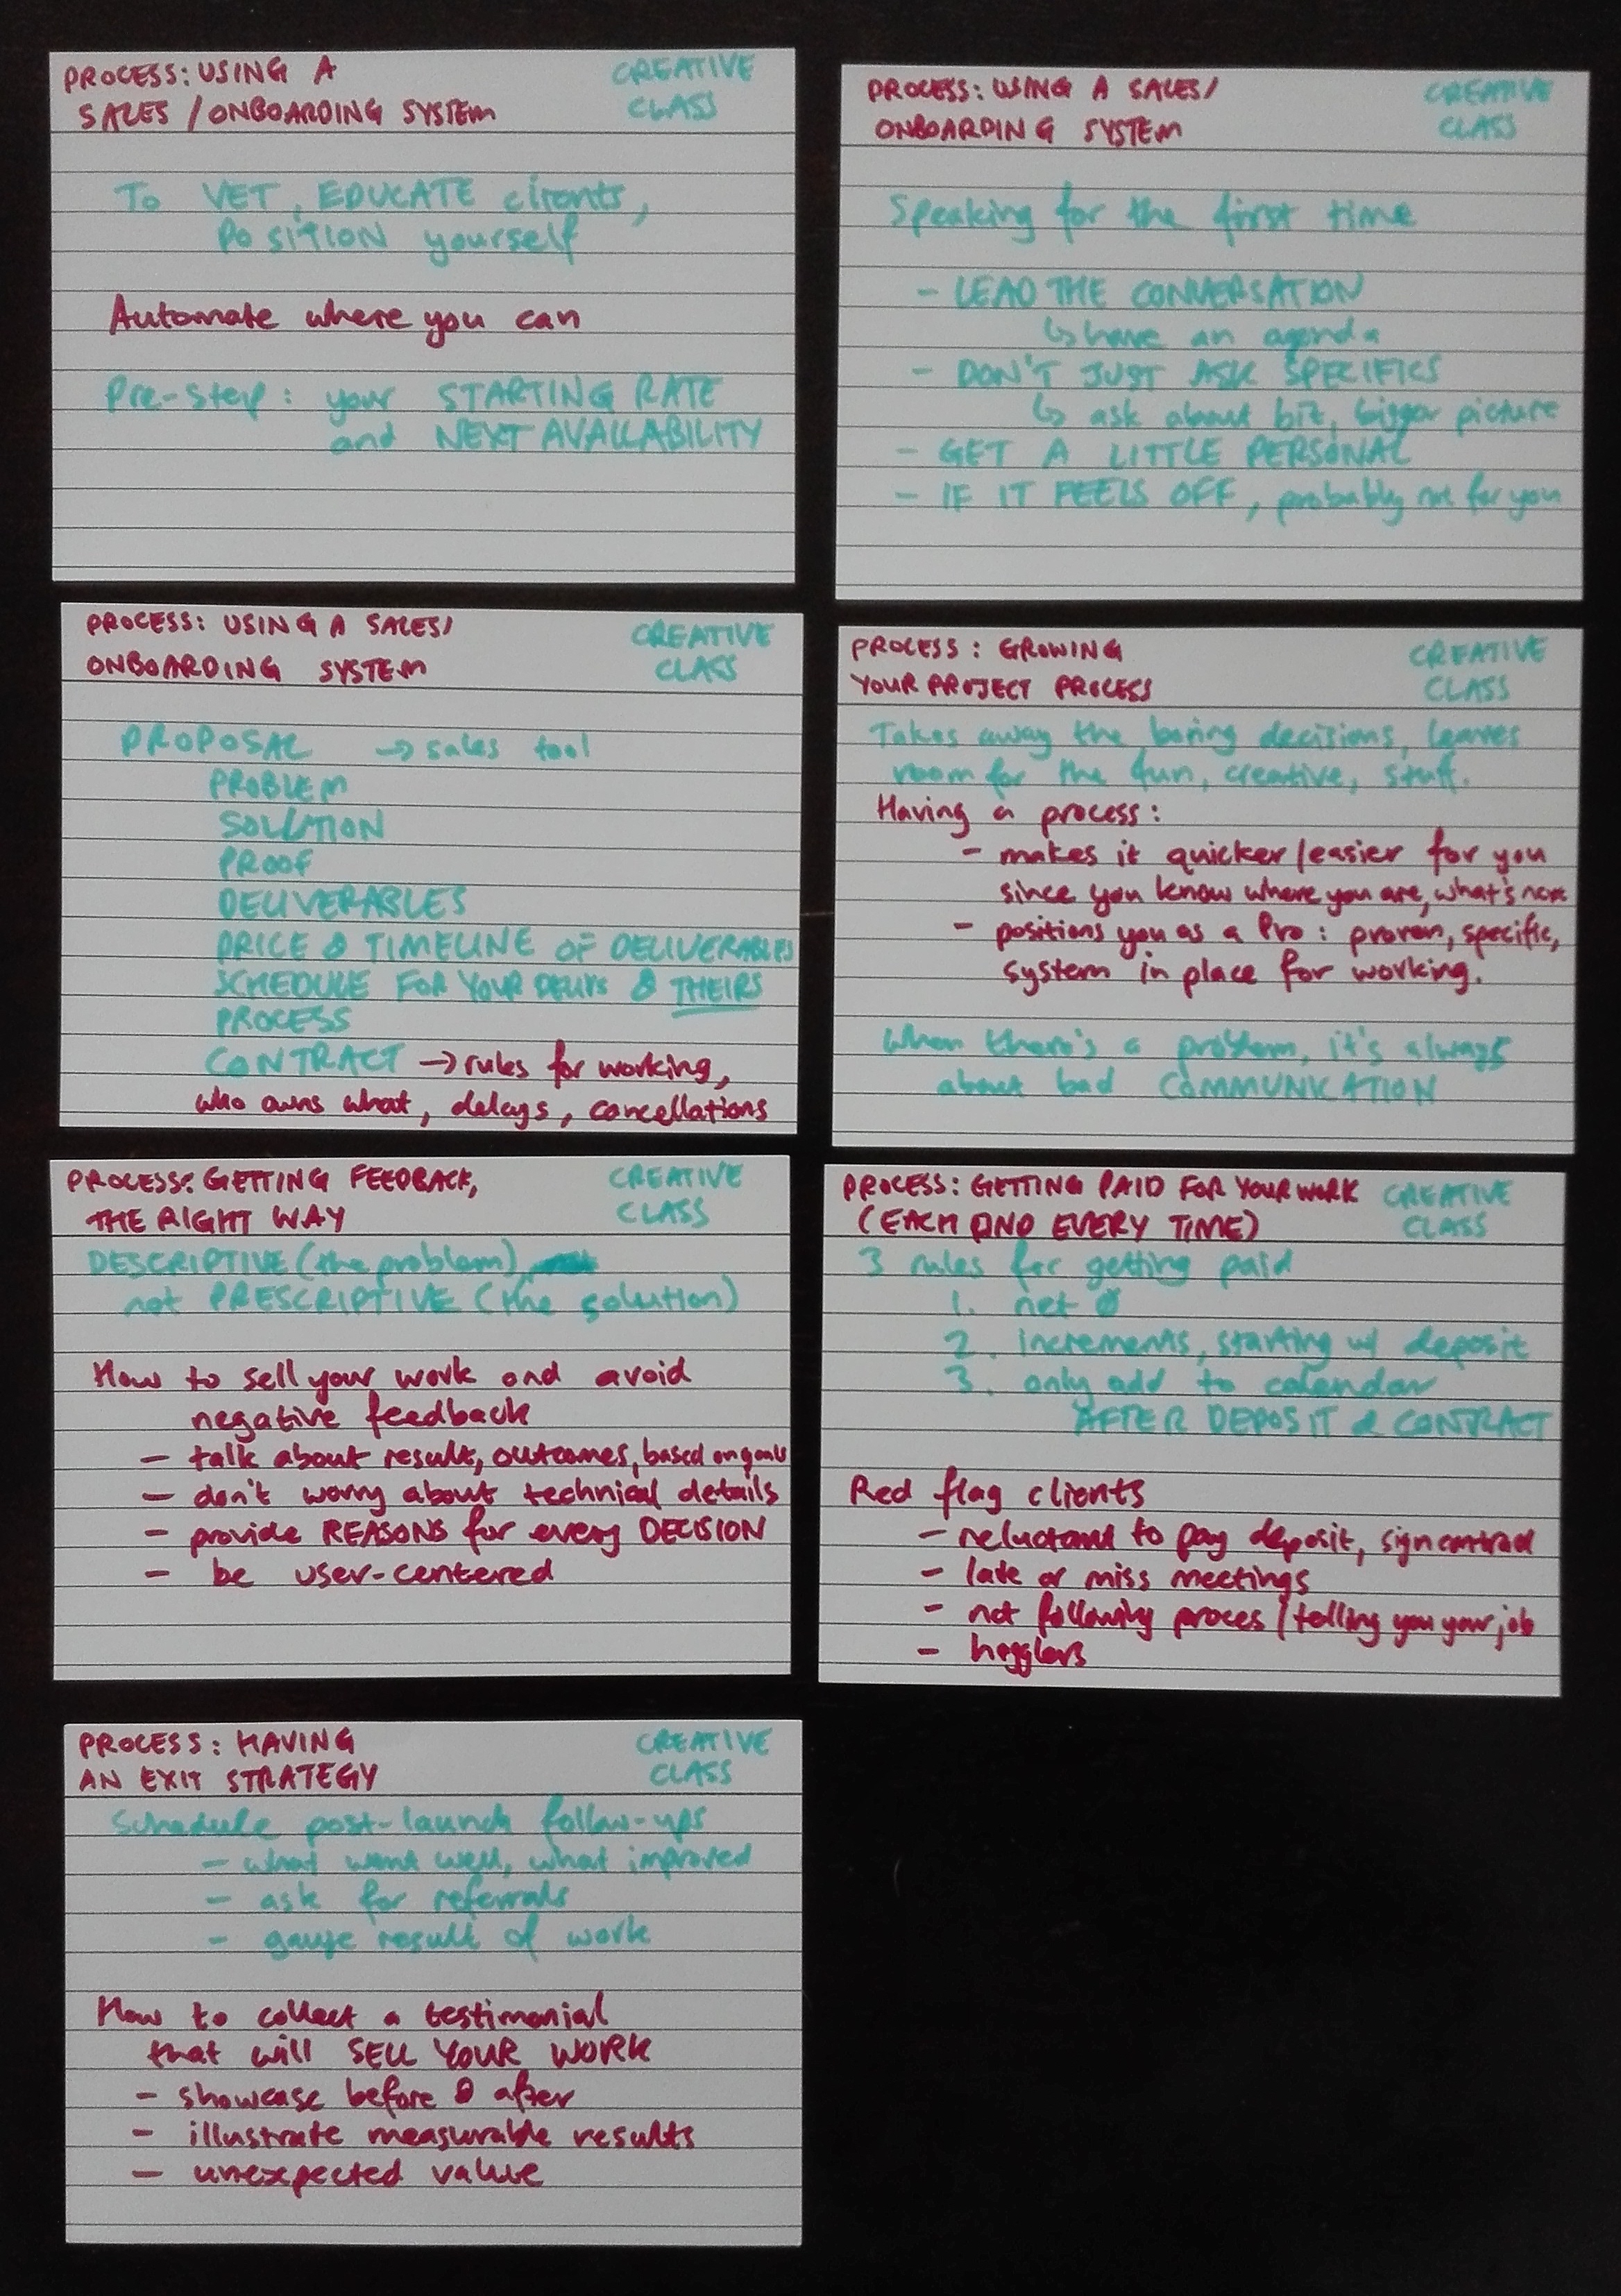 PROCESS: USING A
SALES / ONBOARDING SYSTEM
CREATIVE
CLASS
To VET, EDUCATE clients,
POSITION yourself
Automate where you can
Pre-step: your STARTING RATE
and NEXT AVAILABILITY
PROCESS: USING A SALES/
ONBOARDING SYSTEM
CREATIVE
CLASS
Speaking for the first time
- LEAD THE CONVERSATION
↳ have an agenda
- DON'T JUST ASK SPECIFICS
↳ ask about biz, bigger picture
- GET A LITTLE PERSONAL
- IF IT FEELS OFF, probably not for you
PROCESS: USING A SALES/
ONBOARDING SYSTEM
CREATIVE
CLASS
PROPOSAL → sales tool
PROBLEM
SOLUTION
PROOF
DELIVERABLES
PRICE & TIMELINE OF DELIVERABLES
SCHEDULE FOR YOUR DELIVS & THEIRS
PROCESS
CONTRACT → rules for working,
who owns what, delays, cancellations
PROCESS: GROWING
YOUR PROJECT PROCESS
CREATIVE
CLASS
Takes away the boring decisions, leaves
room for the fun, creative, stuff.
Having a process:
- makes it quicker/easier for you
since you know where you are, what's next
- positions you as a Pro: proven, specific,
system in place for working.
When there's a problem, it's always
about bad COMMUNICATION
PROCESS: GETTING FEEDBACK,
THE RIGHT WAY
CREATIVE
CLASS
DESCRIPTIVE (the problem),
not PRESCRIPTIVE (the solution)
How to sell your work and avoid
negative feedback
- talk about result, outcomes, based on goals
- don't worry about technical details
- provide REASONS for every DECISION
- be user-centered
PROCESS: GETTING PAID FOR YOUR WORK
(EACH AND EVERY TIME)
CREATIVE
CLASS
3 rules for getting paid
1. net 0
2. increments, starting w/ deposit
3. only add to calendar
AFTER DEPOSIT & CONTRACT
Red flag clients
- reluctant to pay deposit, sign contract
- late or miss meetings
- not following proces / telling you your job
- hagglers
PROCESS: HAVING
AN EXIT STRATEGY
CREATIVE
CLASS
Schedule post-launch follow-ups
- what went well, what improved
- ask for referrals
- gauge result of work
How to collect a testimonial
that will SELL YOUR WORK
- showcase before & after
- illustrate measurable results
- unexpected value